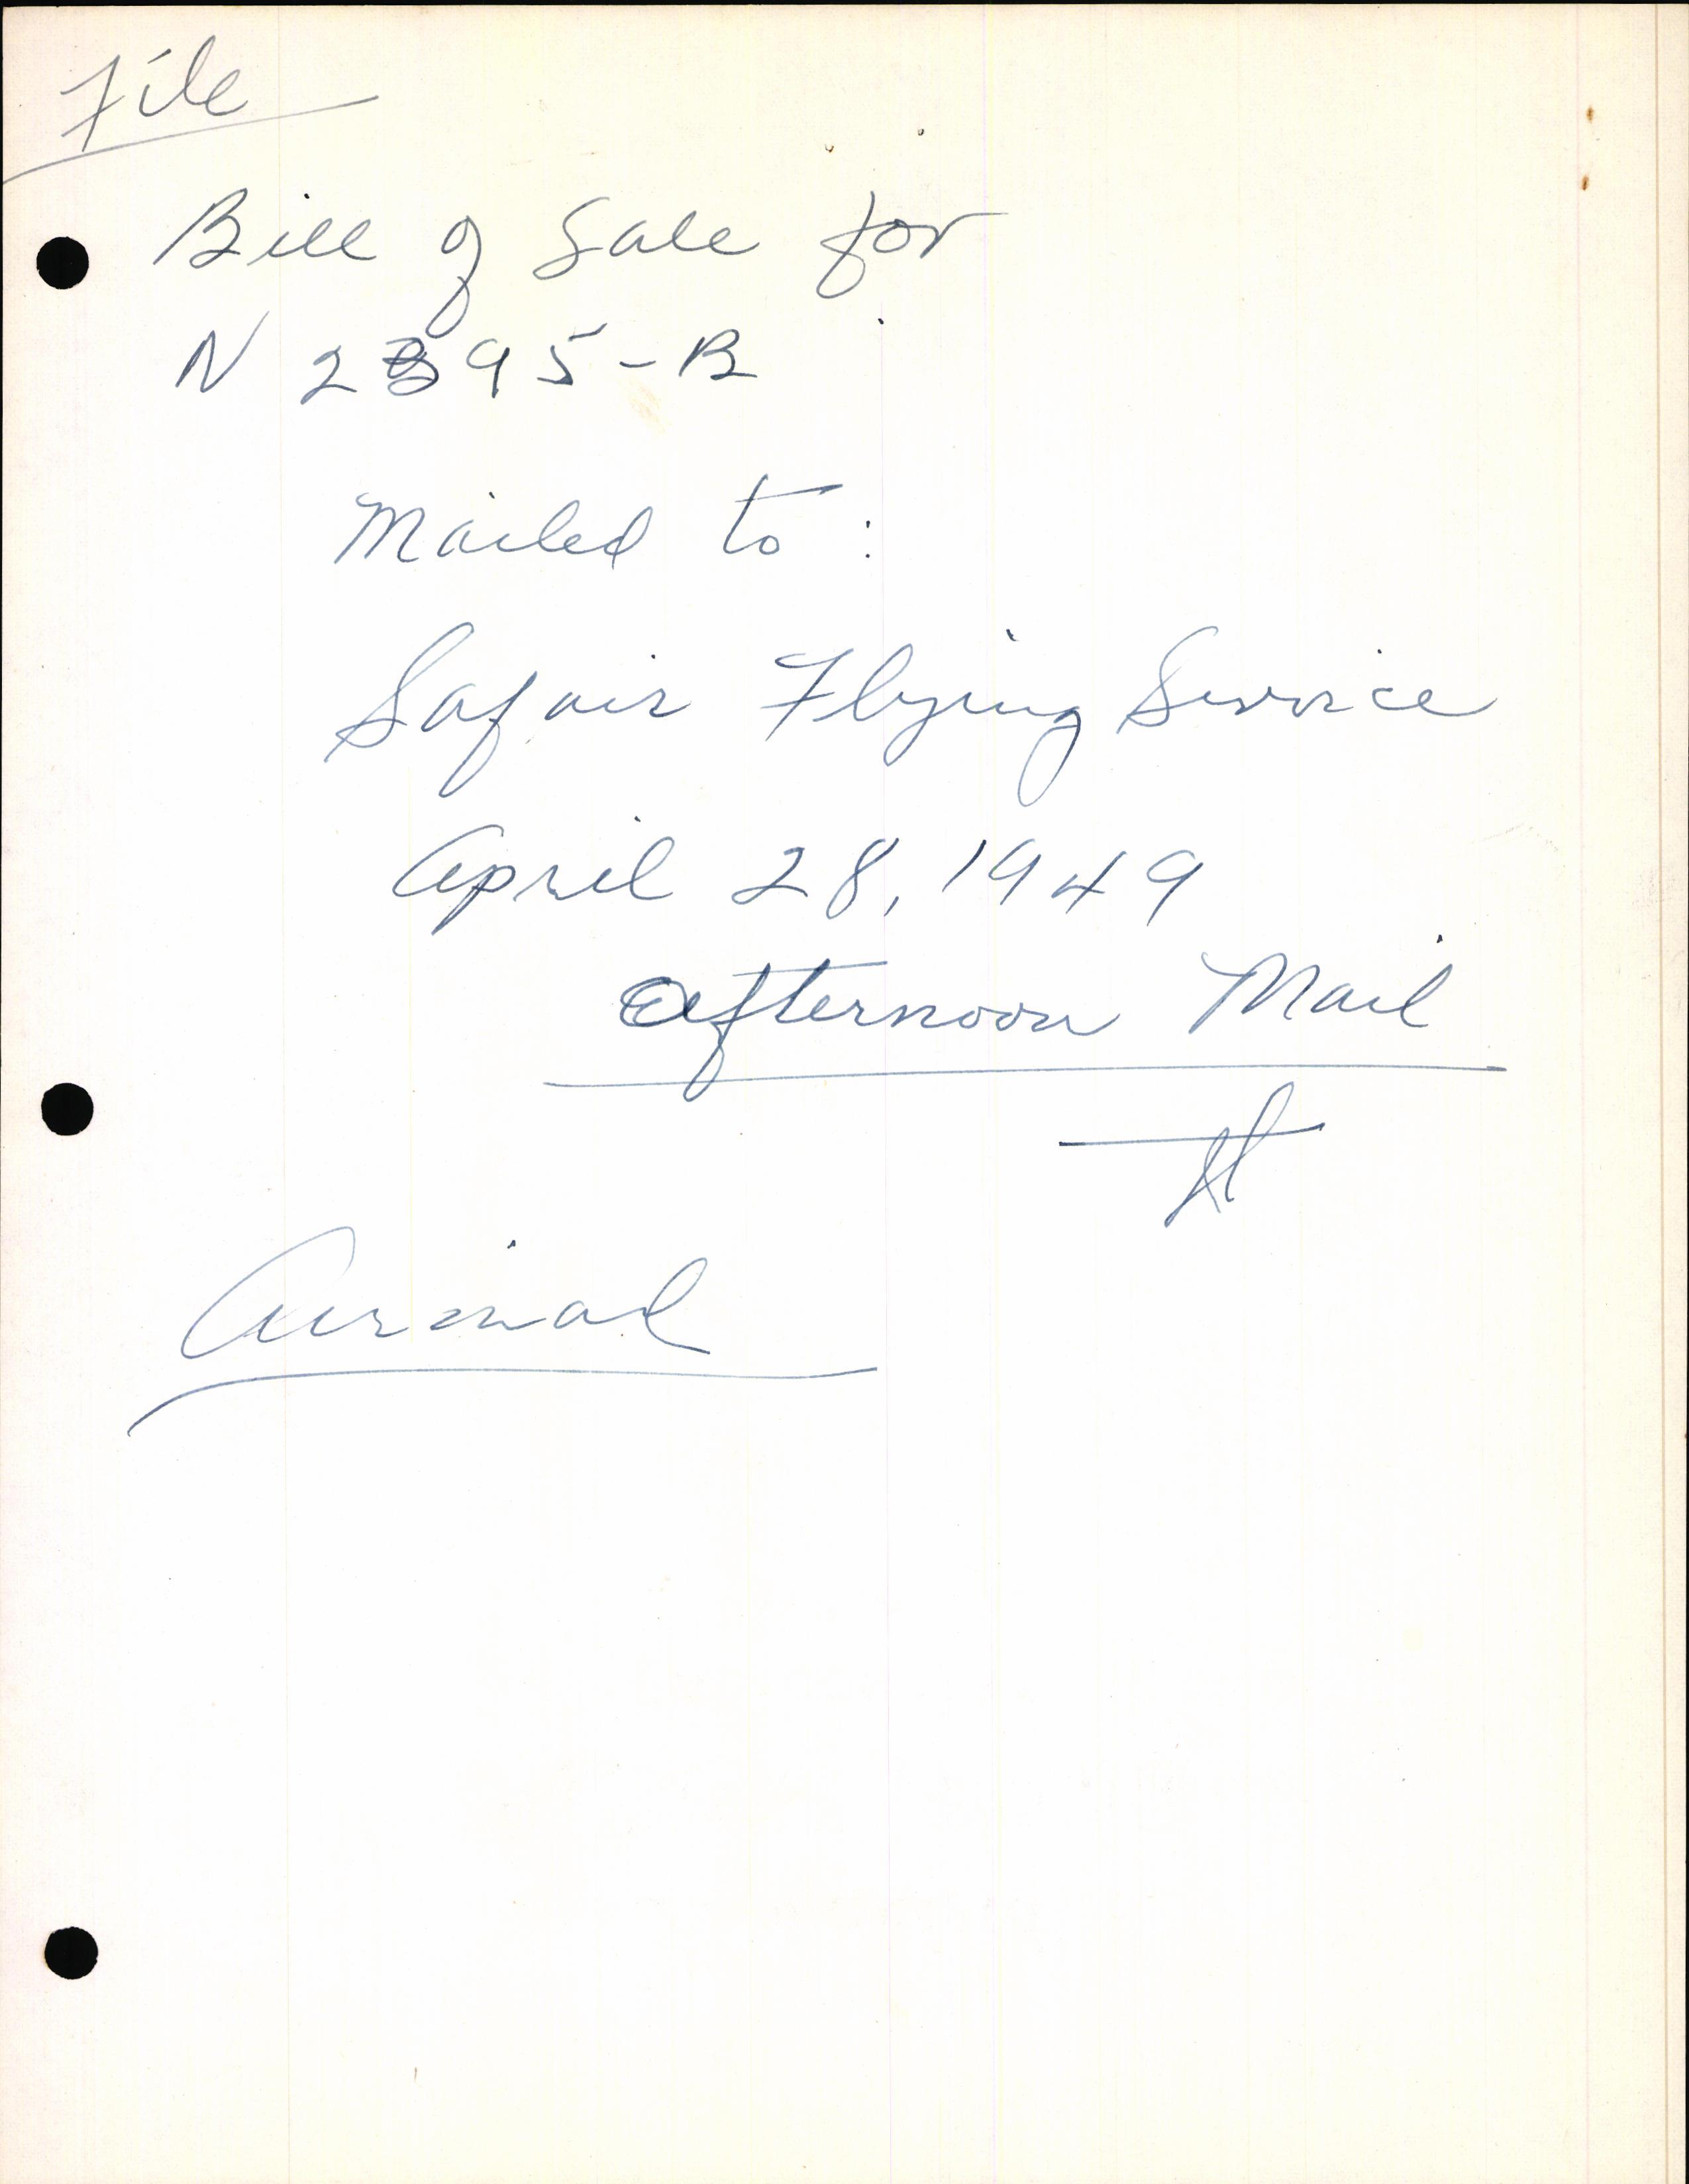 File
Bill of Sale for
N 2395-B
Mailed to :
Safair Flying Service
April 28, 1949
Afternoon Mail
Airmail